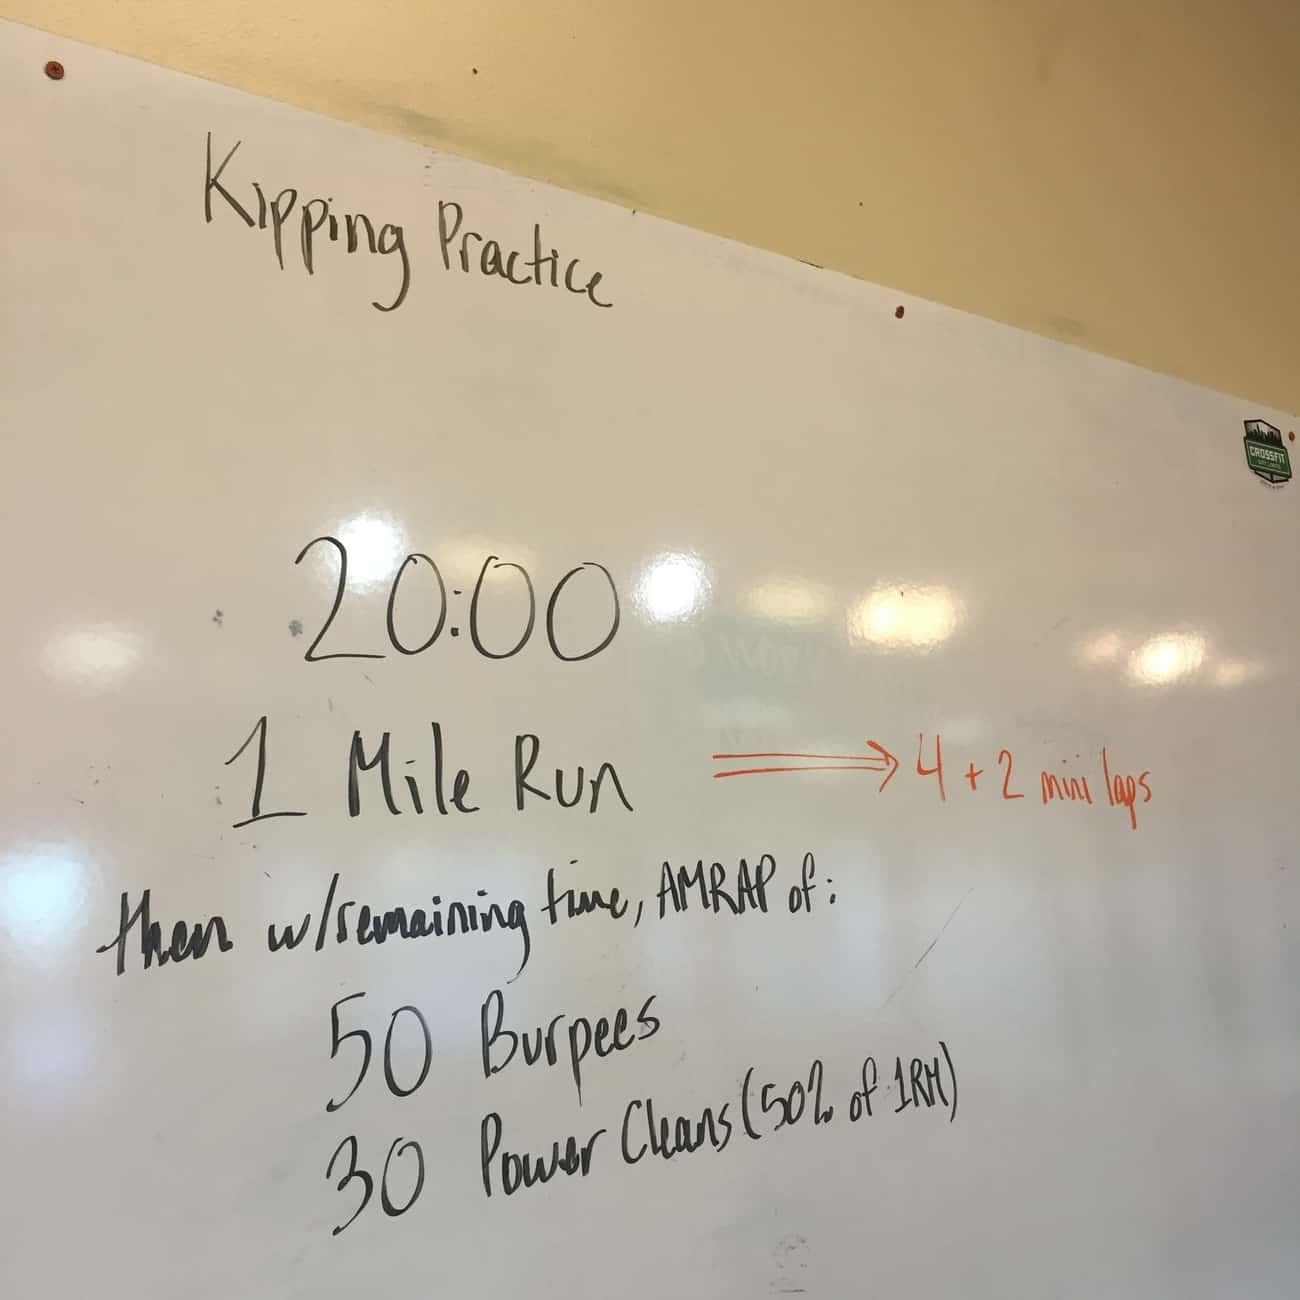 Kipping Practice
CROSSFIT
20:00
1 Mile Run ⟹ 4 + 2 mini laps
then w/remaining time, AMRAP of:
50 Burpees
30 Power Cleans (50% of 1RM)